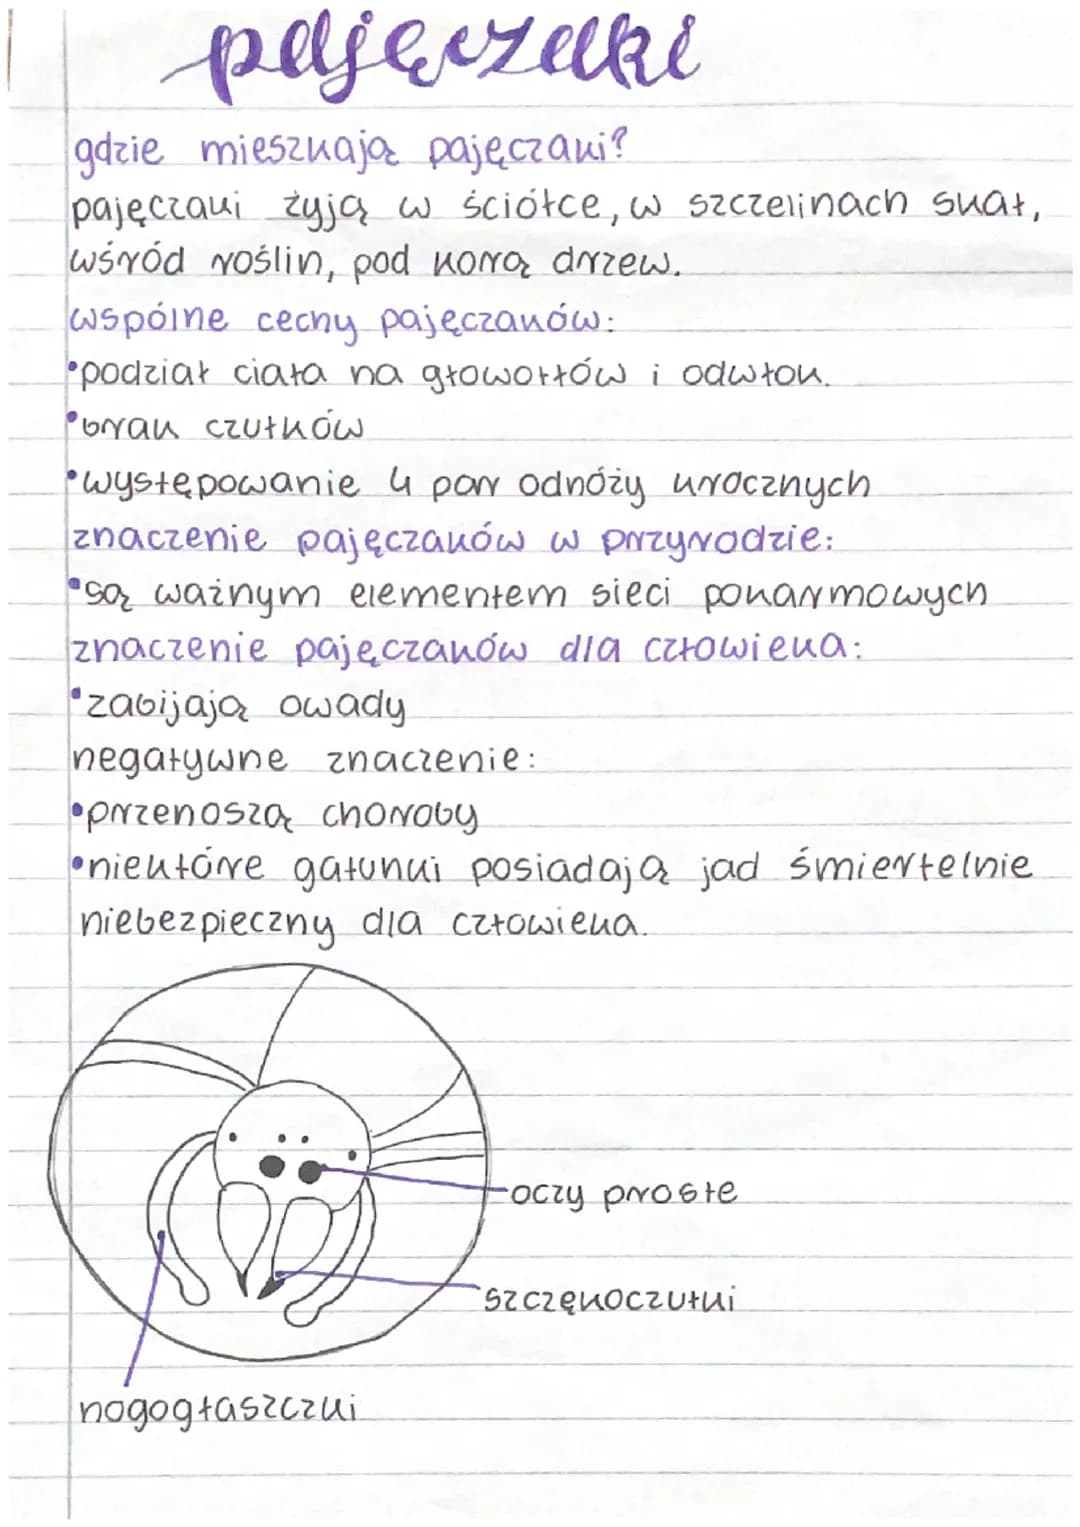 pajęczaki
gdzie mieszkają pajęczaki?
pajęczaki żyją w ściółce, w szczelinach skał,
wśród roślin, pod korą drzew.
wspólne cechy pajęczaków:
•podział ciała na głowotłów i odwłok.
•brak czułków
•występowanie 4 par odnóży krocznych
znaczenie pajęczaków w przyrodzie:
•są ważnym elementem sieci pokarmowych
znaczenie pajęczaków dla człowieka:
•zabijają owady
negatywne znaczenie:
•przenoszą choroby
•niektóre gatunki posiadają jad śmiertelnie
niebezpieczny dla człowieka.
oczy proste
szczękoczułki
nogogłaszczki